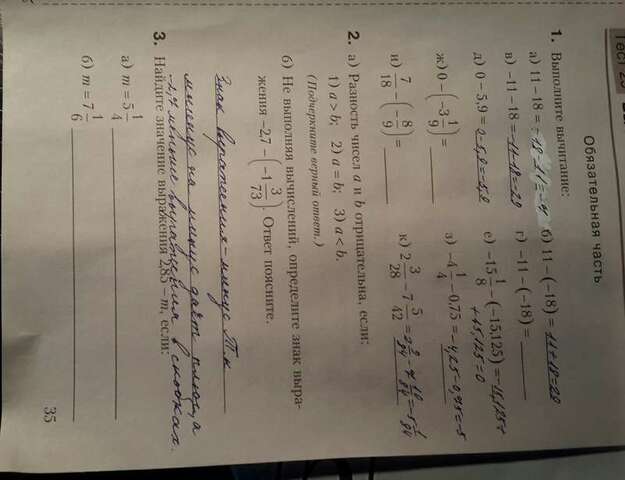 Обязательная часть
1. Выполните вычитание:
а) 11 – 18 = – 18 – 11 = – 7 б) 11 – (–18) = 11 + 18 = 29
в) –11 – 18 = –11–18=–29 г) –11 – (–18) = ______
д) 0 – 5,9 = 0–5,9=–5,9 е) –15 1/8 – (–15,125) = –15,125+
+15,125=0
ж) 0 – (–3 1/9) = ______ з) –4 1/4 – 0,75 = –4,25–0,75=–5
и) 7/18 – (–8/9) = ______ к) 2 3/28 – 7 5/42 =
2. а) Разность чисел a и b отрицательна, если:
1) a > b; 2) a = b; 3) a < b.
(Подчеркните верный ответ.)
б) Не выполняя вычислений, определите знак выра-
жения –2,7 – (–1 3/73). Ответ поясните.
Знак выражения – минус Т.к
минус на минус даёт плюс, а
2,7 меньше выражения в скобках.
3. Найдите значение выражения 2,85 – m, если:
а) m = 5 1/4
б) m = 7 1/6
35